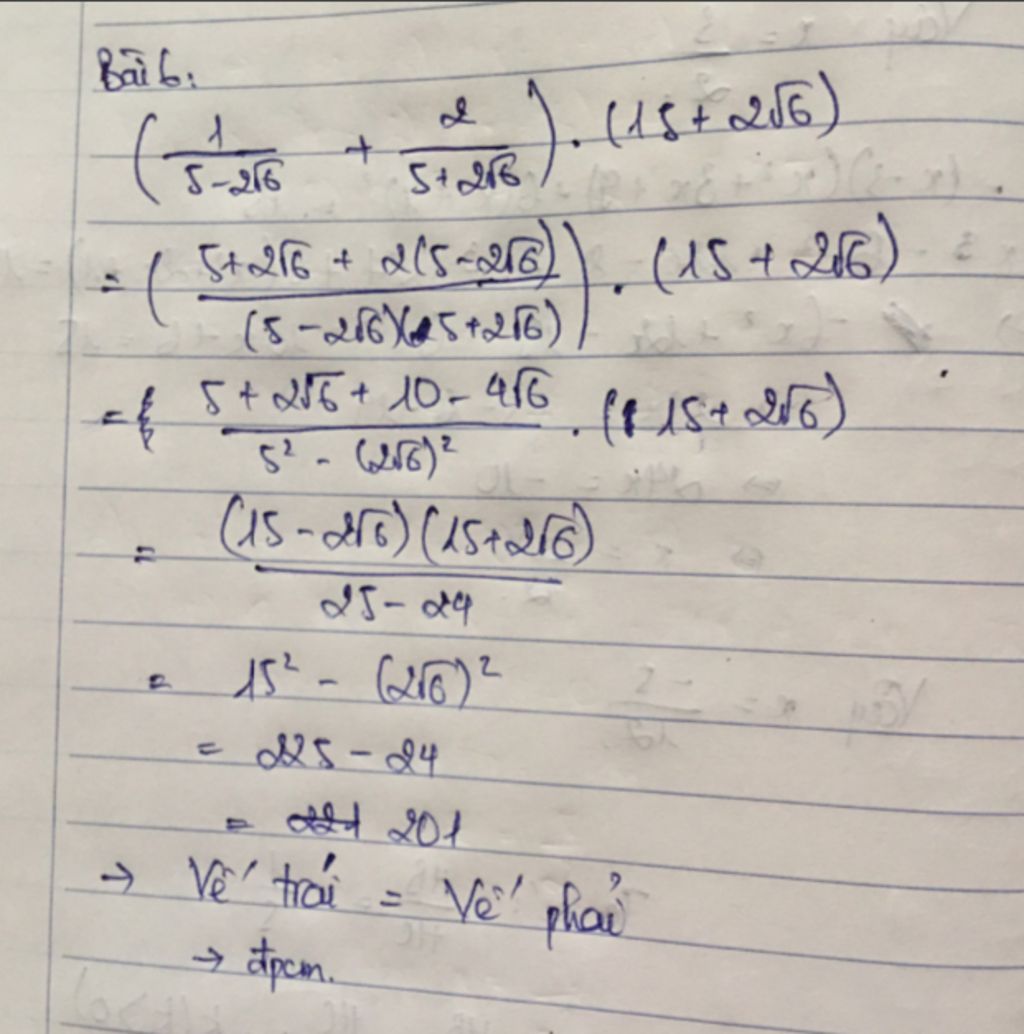 Bài 6:
(1/(5-2√6) + 2/(5+2√6)) . (15+2√6)
= ((5+2√6 + 2(5-2√6))/((5-2√6)(5+2√6))) . (15+2√6)
= (5+2√6+10-4√6)/(5² - (2√6)²) . (15+2√6)
= ((15-2√6)(15+2√6))/(25-24)
= 15² - (2√6)²
= 225 - 24
= 201
→ Vế trái = Vế phải
→ đpcm.